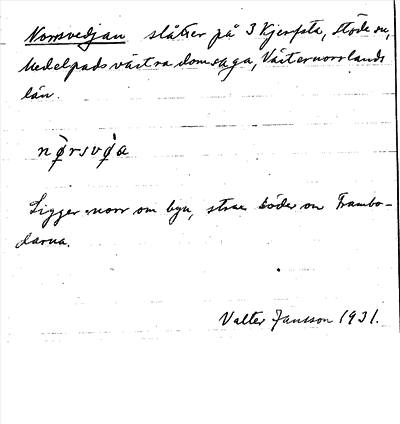 Norrsvedjan slåtter på 3 Kjerfsta, Stöde sn,
Medelpads västra domsaga, Västernorrlands
län.
nø̀rsvø̀a
Ligger norr om byn, strax söder om Frambo-
darna.
Valter Jansson 1931.